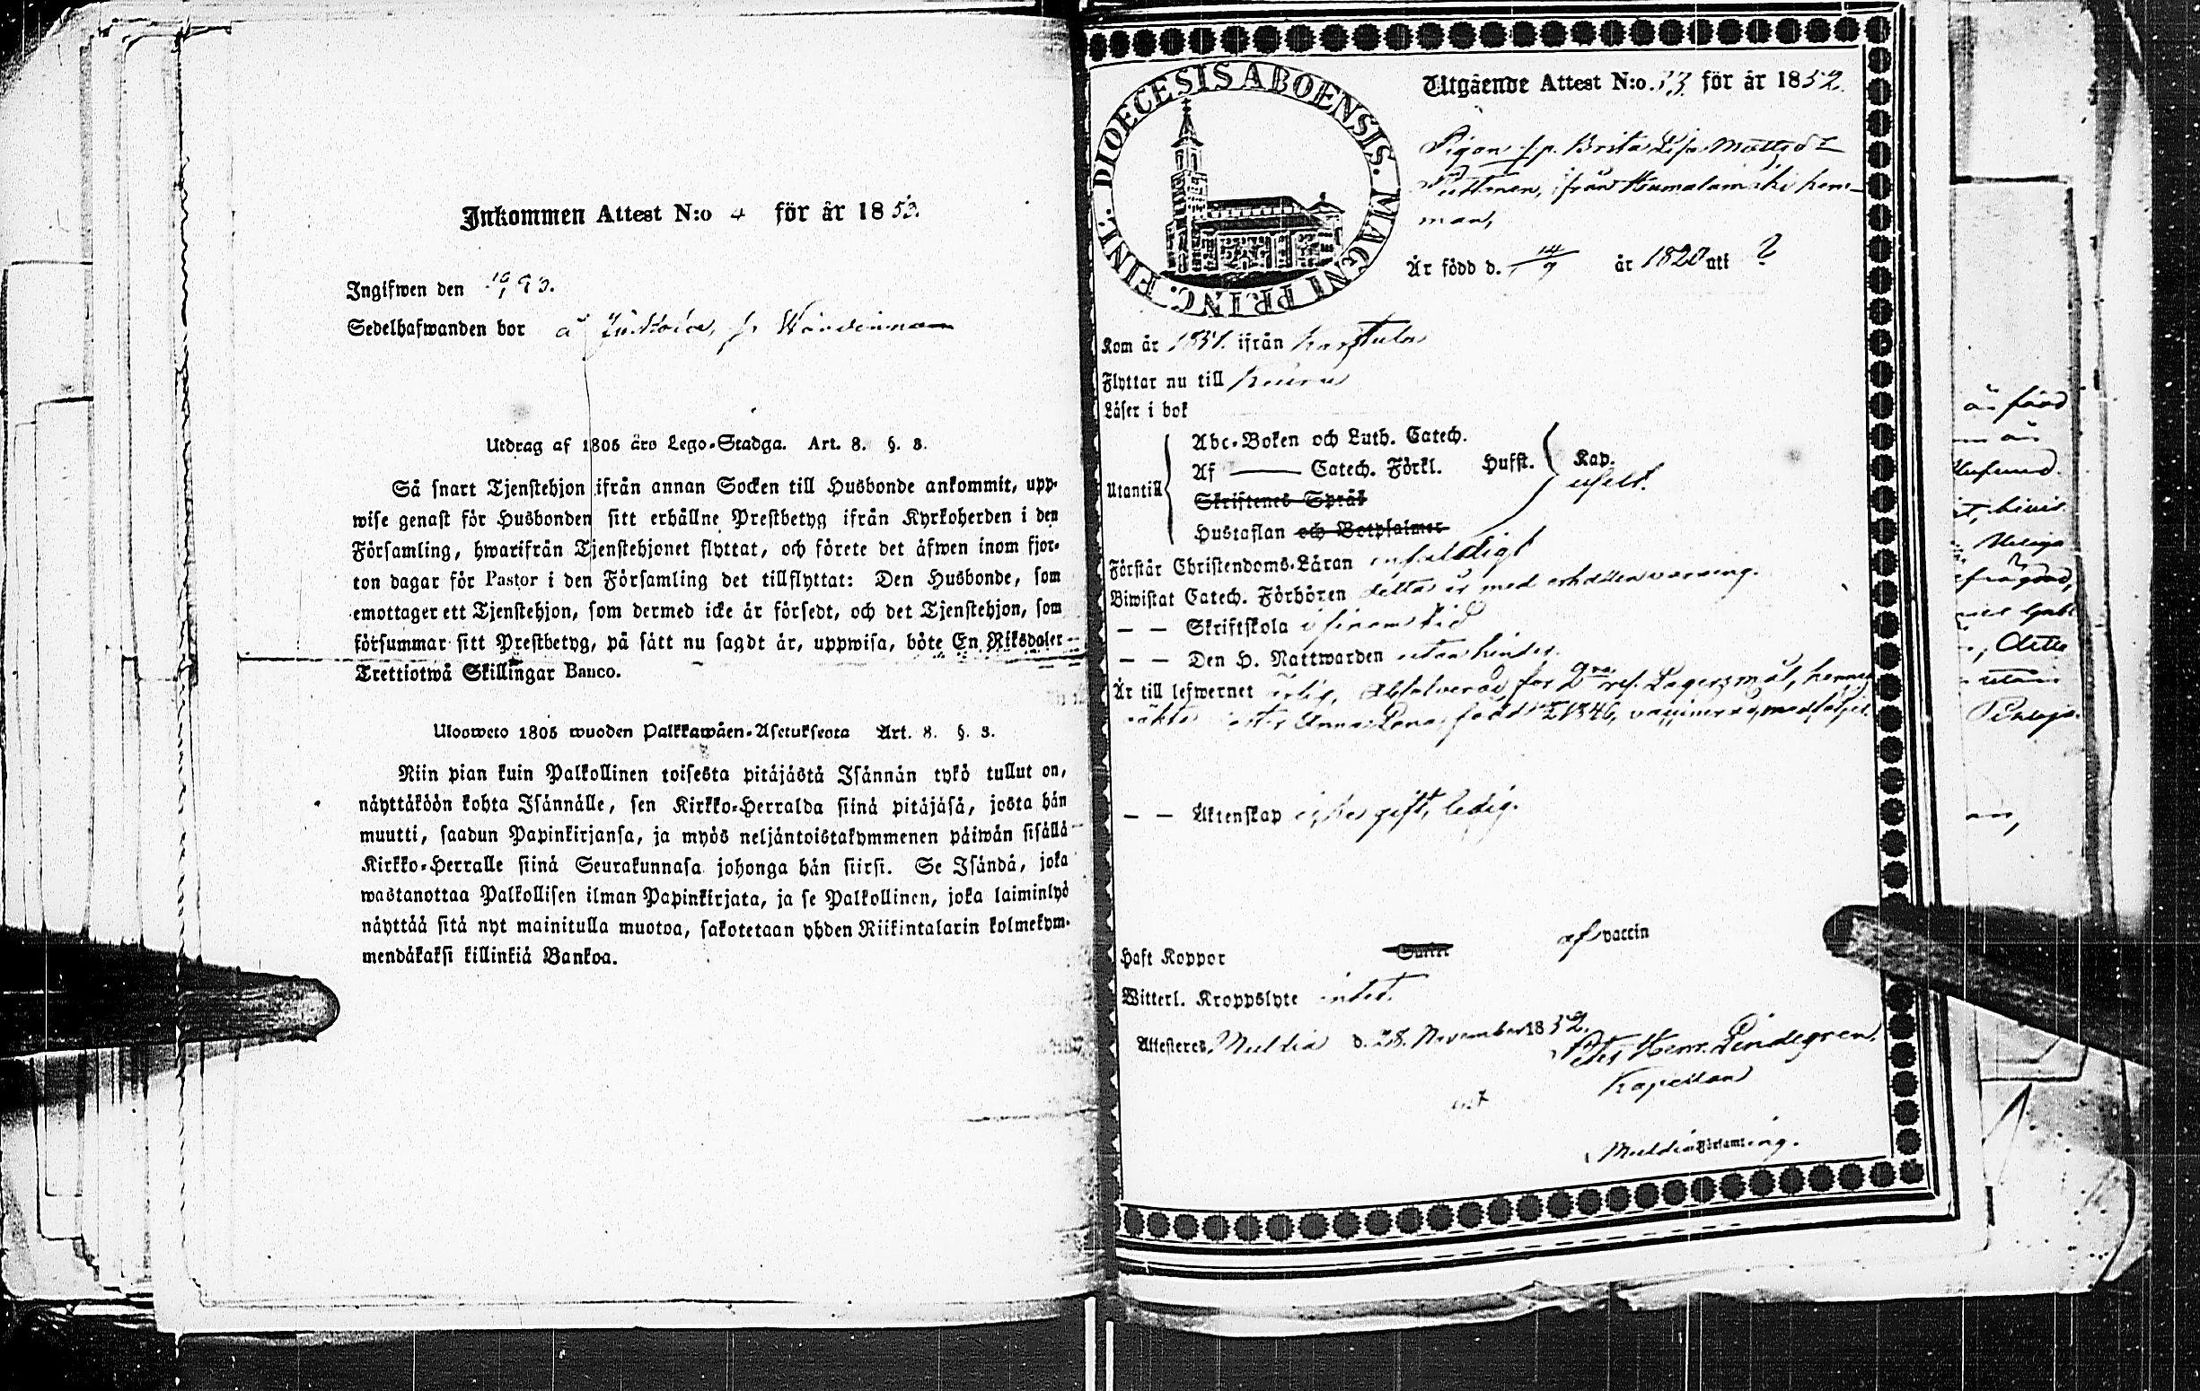 Inkommen Attest N:o 4 för år 1853.
Ingifwen den 10/1 93.
Sedelhafwanden bor å
Utdrag af 1805 års Lego-Stadga. Art. 8. §. 3.
Så snart Tjenstehjon ifrån annan Socken till Husbonde ankommit, upp-
wise genast för Husbonden sitt erhållne Prestbetyg ifrån Kyrkoherden i den
Församling, hwarifrån Tjenstehjonet flyttat, och förete det äfwen inom fjor-
ton dagar för Pastor i den Församling det tillflyttat: Den Husbonde, som
emottager ett Tjenstehjon, som dermed icke är försedt, och det Tjenstehjon, som
försummar sitt Prestbetyg, på sätt nu sagdt är, uppwisa, böte En Riksdaler
Trettiotwå Skillingar Banco.
Ulosweto 1805 wuoden Palkkawäen-Asetuksesta Art. 8. §. 3.
Niin pian kuin Palkollinen toisesta pitäjästä Isännän tykö tullut on,
näyttäköön kohta Isännälle, sen Kirkko-Herralda siinä pitäjäsä, josta hän
muutti, saadun Papinkirjansa, ja myös neljäntoistakymmenen päiwän sisällä
Kirkko-Herralle siinä Seurakunnasa johonga hän siirsi. Se Isändä, joka
wastanottaa Palkollisen ilman Papinkirjata, ja se Palkollinen, joka laiminlyö
näyttää sitä nyt mainitulla muotoa, sakotetaan yhden Riikintalarin kolmekym-
mendäkaksi killinkiä Bankoa.
DIOECESIS ABOENSIS. MAGNI PRINC. FINL.
Utgående Attest N:o 33 för år 1852.
Pigan Brita Lisa Mattsd:r
Puttonen, ifrån hem-
man,
Är född d. 14/9 år 1820 uti ?
Kom år 1851. ifrån Karstula
Flyttar nu till Keuru
Läser i bok
Utantill
Abc-Boken och Luth. Catech.
Af —— Catech. Förkl. Hufst. Kap.
Skriftenes Språk
Hustaflan och Botpsalmer
Förstår Christendoms-Läran enfaldigt
Biwistat Catech. Förhören detta år med erhållen varning.
— — Skriftskola i sinom tid
— — Den H. Nattwarden utan hinder.
Är till lefwernet ärlig, absolverad för 2dra res. Lägersmål, hennes
oäkta dotter Anna Lena född 1846, vaccinerad, medföljer.
— — Äktenskap icke gift, ledig.
Haft Koppor af vaccin
Witterl. Kroppslyte intet.
Attesteras, Multia d. 28. November 1852.
Petr. Henr. Lindegren,
Kapellan
Multia Församling.